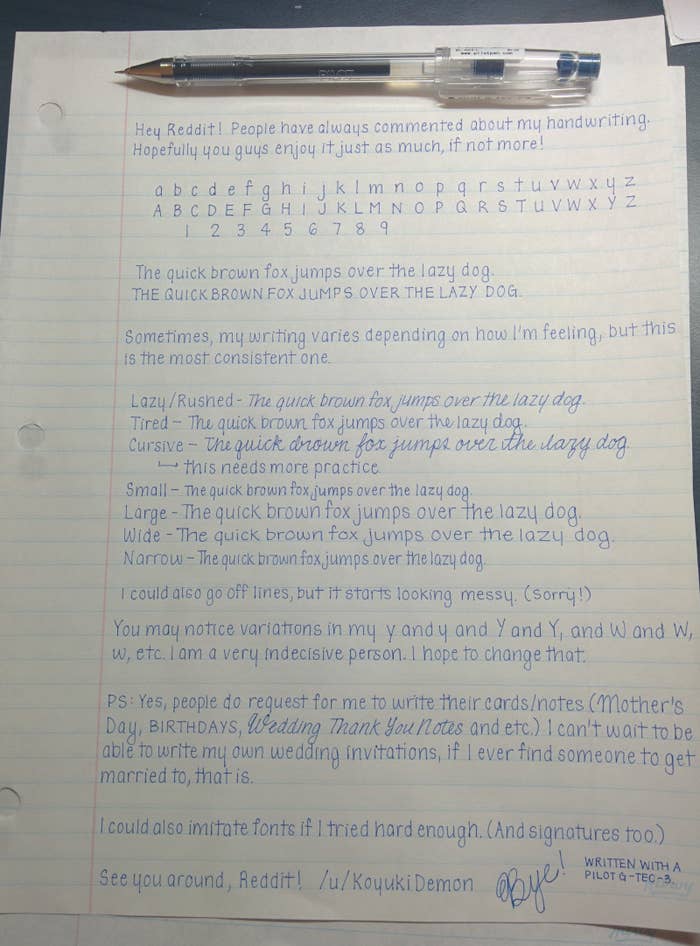 PILOT
Hey Reddit! People have always commented about my handwriting.
Hopefully you guys enjoy it just as much, if not more!
a b c d e f g h i j k l m n o p q r s t u v w x y z
A B C D E F G H I J K L M N O P Q R S T U V W X Y Z
1 2 3 4 5 6 7 8 9
The quick brown fox jumps over the lazy dog.
THE QUICK BROWN FOX JUMPS OVER THE LAZY DOG.
Sometimes, my writing varies depending on how I'm feeling, but this
is the most consistent one.
Lazy/Rushed - The quick brown fox jumps over the lazy dog.
Tired - The quick brown fox jumps over the lazy dog.
Cursive - The quick brown fox jumps over the lazy dog.
this needs more practice.
Small - The quick brown fox jumps over the lazy dog.
Large - The quick brown fox jumps over the lazy dog.
Wide - The quick brown fox jumps over the lazy dog.
Narrow - The quick brown fox jumps over the lazy dog.
I could also go off lines, but it starts looking messy. (Sorry!)
You may notice variations in my y and y and Y and Y, and W and W,
w, etc. I am a very indecisive person. I hope to change that.
PS: Yes, people do request for me to write their cards/notes (Mother's
Day, BIRTHDAYS, Wedding Thank You Notes and etc.) I can't wait to be
able to write my own wedding invitations, if I ever find someone to get
married to, that is.
I could also imitate fonts if I tried hard enough. (And signatures too.)
See you around, Reddit! /u/KoyukiDemon Bye!
WRITTEN WITH A
PILOT G-TEC-3.